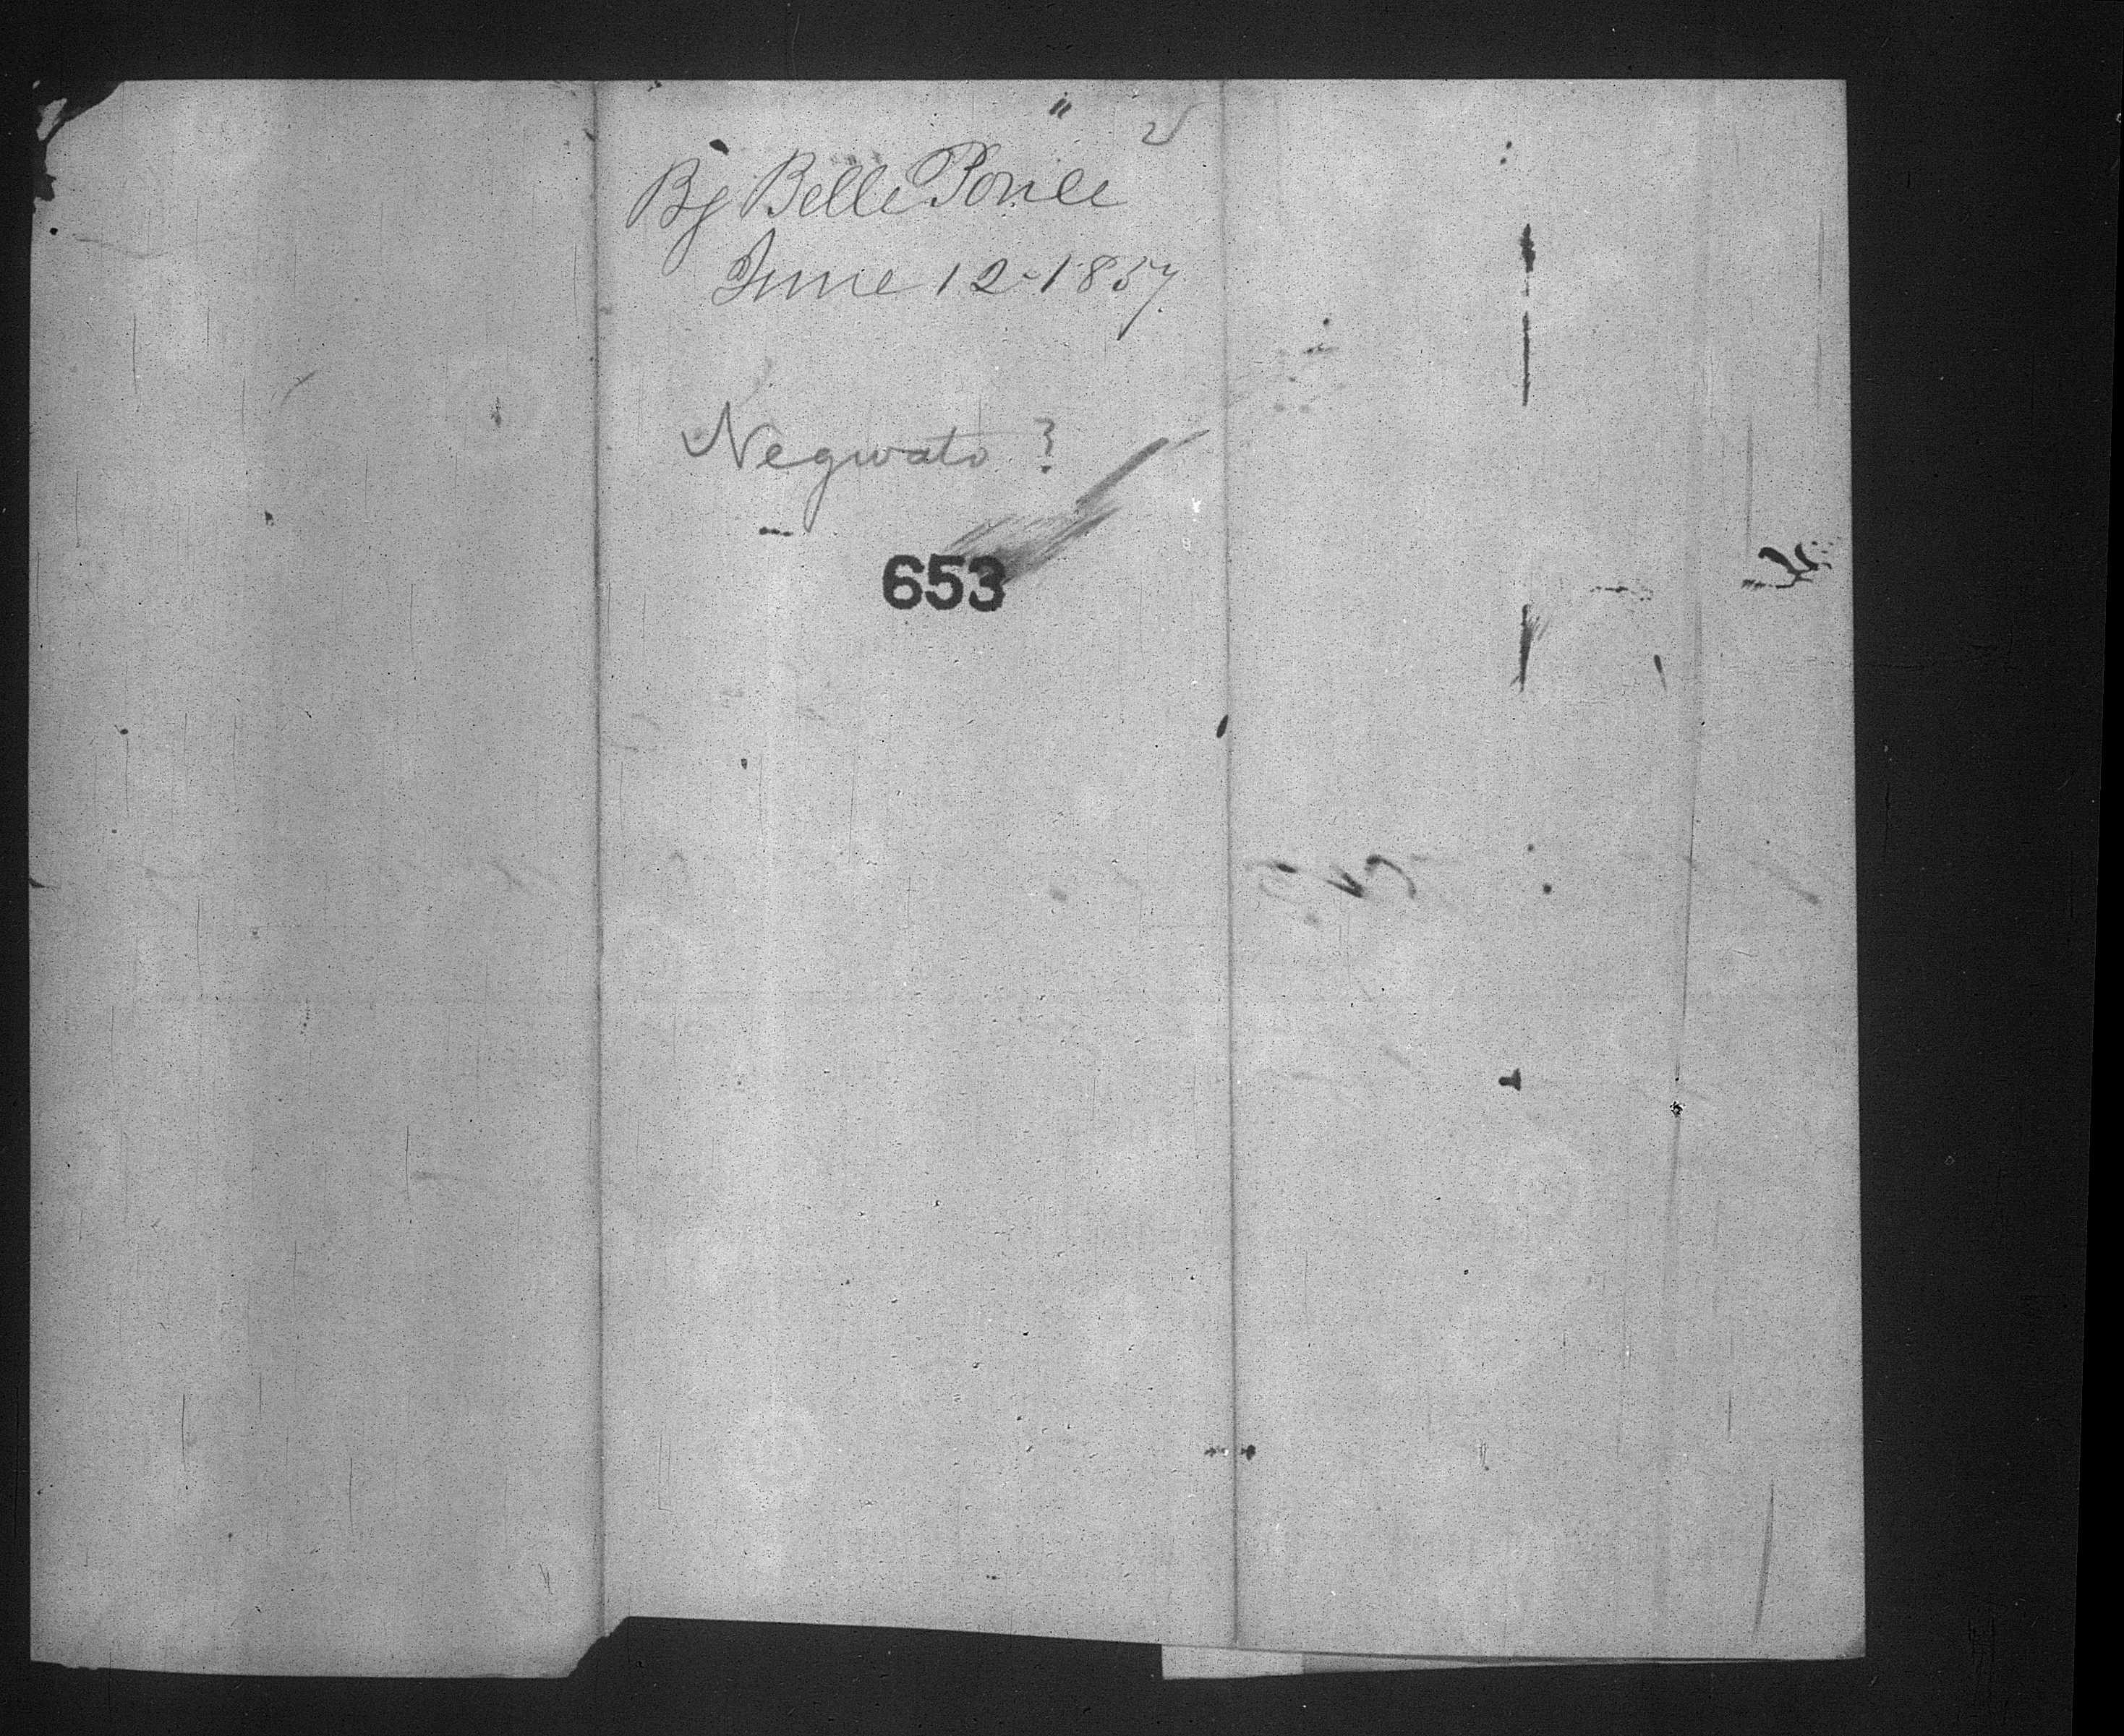 By Belle Ponce
June 12-1857
Negwato ?
653